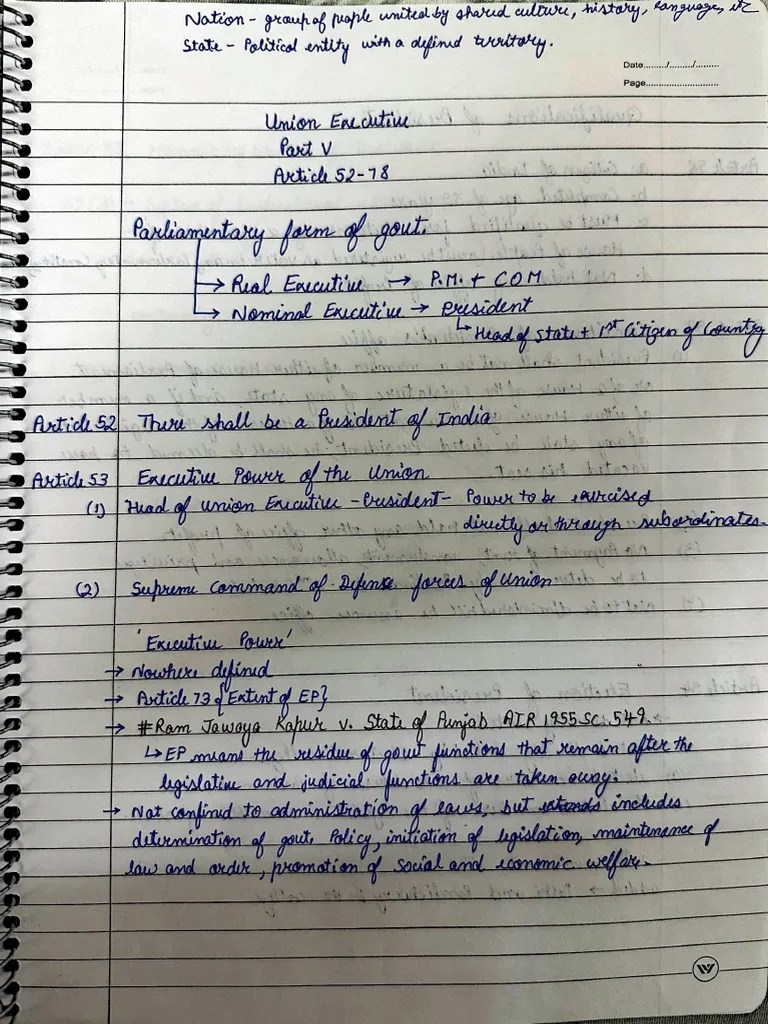 Nation - group of people united by shared culture, history, language, etc
State - Political entity with a defined territory.
Date......../........./.........
Page............................
Union Executive
Part V
Article 52-78
Parliamentary form of govt.
→ Real Executive → P.M. + COM
→ Nominal Executive → President
↳ Head of State + 1st Citizen of Country
Article 52 There shall be a President of India
Article 53 Executive Power of the Union
(1) Head of union Executive - President - Power to be exercised
directly or through subordinates.
(2) Supreme Command of Defense forces of Union
'Executive Power'
→ Nowhere defined
→ Article 73 {Extent of EP}
→ #Ram Jawaya Kapur v. State of Punjab AIR 1955 SC. 549.
↳ EP means the residue of govt functions that remain after the
legislative and judicial functions are taken away.
→ Not confined to administration of laws, but extends includes
determination of govt. Policy, initiation of legislation, maintenance of
law and order, promotion of social and economic welfare.
W